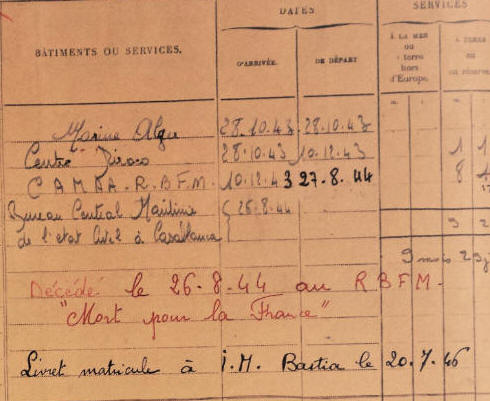 DATES
SERVICES
BÂTIMENTS OU SERVICES.
D'ARRIVÉE.
DE DÉPART
À LA MER
ou
à terre
hors
d'Europe.
À TERRE
ou
en réserve
Marine Alger 28.10.43 28.10.43
Centre Siroco 28.10.43 10.12.43 1 1
C A M B A - R. B. F. M. 10.12.43 27.8.44 8 1
Bureau Central Maritime 26.8.44
de l'état Civil à Casablanca
9 2
9 mois 29j
Décédé le 26-8-44 au R B F M.
"Mort pour la France"
Livret matricule à I.M. Bastia le 20.7.46